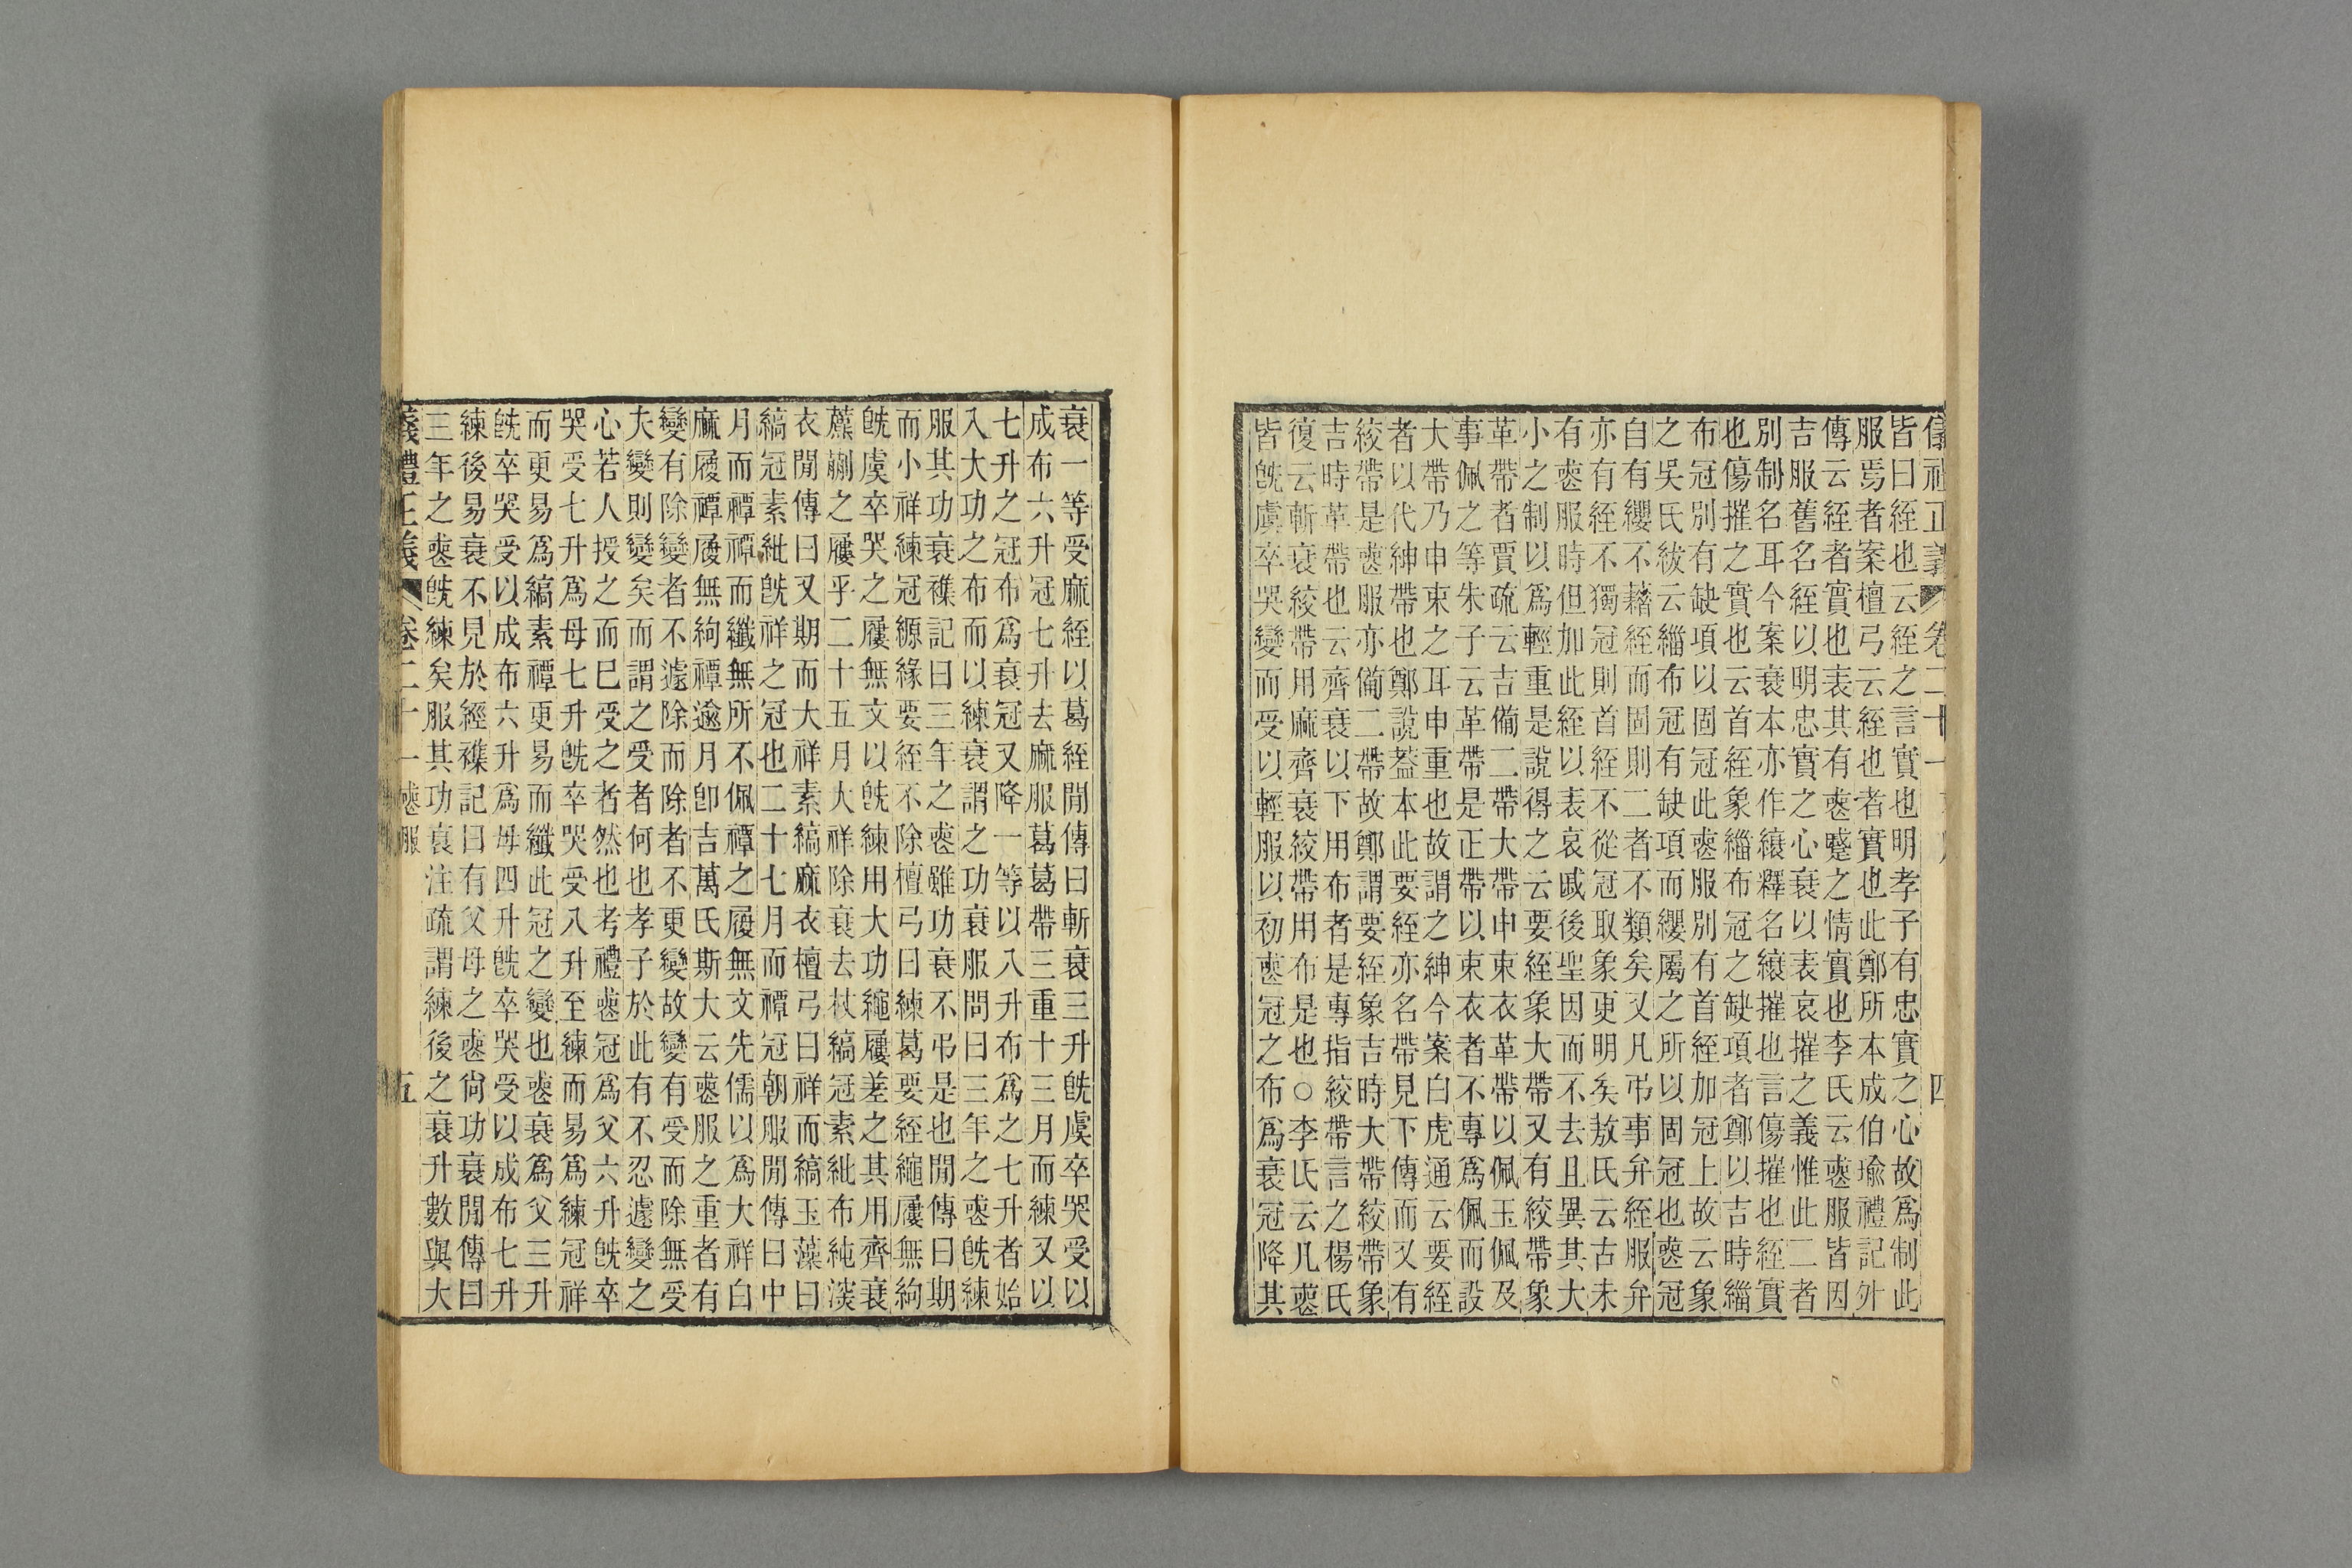 皆曰絰也云絰之言實也明孝子有忠實之心故爲制此
服焉者案檀弓云絰也者實也此鄭所本成伯瑜禮記外
傳云絰者實也表其有喪蹙之情實也李氏云喪服皆因
吉服舊名絰以明忠實之心衰以表哀摧之義惟此二者
別制名耳今案衰本亦作縗釋名縗摧也言傷摧也絰實
也傷摧之實也云首絰象緇布冠之缺項者鄭以吉時緇
布冠別有缺項以固冠此喪服別有首絰加冠上故云象
之吳氏紱云緇布冠有缺項而纓屬之所以固冠也喪冠
自有纓不藉絰而固則二者不類矣又凡弔事弁絰服弁
亦有絰不獨冠則首絰不從冠取象更明矣敖氏云古未
有喪服時但加此絰以表哀戚後聖因而不去且異其大
小之制以爲輕重是說得之云要絰象大帶又有絞帶象
革帶者賈疏云吉備二帶大帶申束衣革帶以佩玉佩及
事佩之等朱子云革帶是正帶以束衣者不專爲佩而設
大帶乃申束之耳申重也故謂之紳今案白虎通云要絰
者以代紳帶也鄭說蓋本此要絰亦名帶見下傳而又有
絞帶是喪服亦備二帶故鄭謂要絰象吉時大帶絞帶象
吉時革帶也云齊衰以下用布者是專指絞帶言之楊氏
復云斬衰絞帶用麻齊衰絞帶用布是也○李氏云凡喪
皆旣虞卒哭變而受以輕服以初喪冠之布爲衰冠降其
衰一等受麻絰以葛絰閒傳曰斬衰三升旣虞卒哭受以
成布六升冠七升去麻服葛葛帶三重十三月而練又以
七升之冠布爲衰冠又降一等以八升布爲之七升者始
入大功之布而以練衰謂之功衰服問曰三年之喪旣練
服其功衰襍記曰三年之喪雖功衰不弔是也閒傳曰期
而小祥練冠縓緣要絰不除檀弓曰練葛要絰繩屨無絇
旣虞卒哭之屨無文以旣練用大功繩屨差之其用齊衰
藨蒯之屨乎二十五月大祥除衰去杖縞冠素紕布純淡
衣閒傳曰又期而大祥素縞麻衣檀弓曰祥而縞玉藻曰
縞冠素紕旣祥之冠也二十七月而禫冠朝服閒傳曰中
月而禫禫而纖無所不佩禫之履無文先儒以爲大祥白
麻履禫履無絇禫逾月卽吉萬氏斯大云喪服之重者有
變有除變者不遽除而除者不更變故變有受而除無受
夫變則變矣而謂之受者何也孝子於此有不忍遽變之
心若人授之而巳受之者然也考禮喪冠爲父六升旣卒
哭受七升爲母七升旣卒哭受八升至練而易爲練冠祥
而更易爲縞素禫更易而纖此冠之變也喪衰爲父三升
旣卒哭受以成布六升爲母四升旣卒哭受以成布七升
練後易衰不見於經襍記曰有父母之喪尙功衰閒傳曰
三年之喪旣練矣服其功衰注疏謂練後之衰升數與大